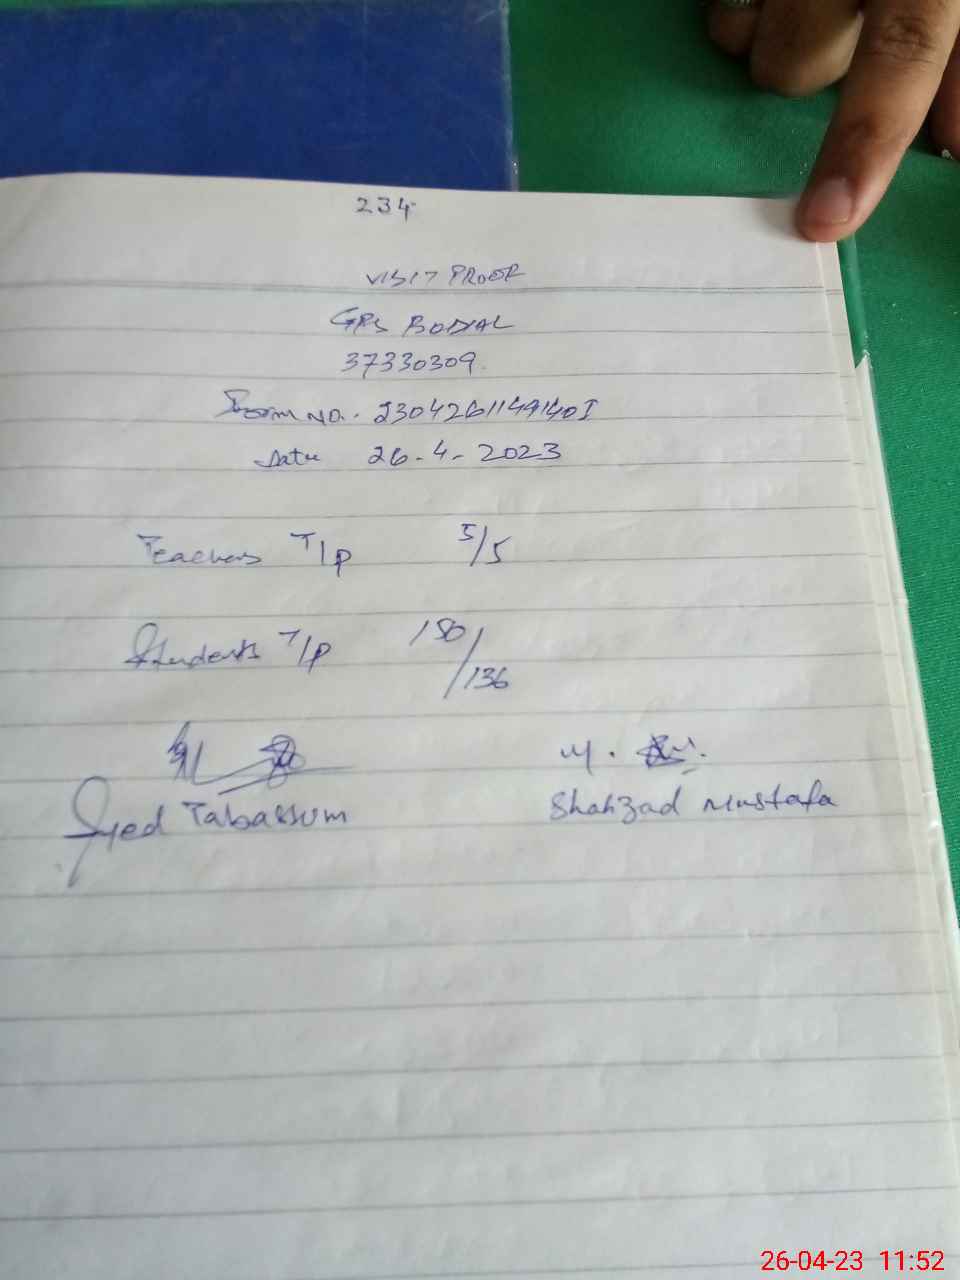 234
VISIT PROOF
GPS BODIAL
37330309.
Form No. 230426114914OI
Date 26-4-2023
Teachers T/P 5/5
Students T/P 150/136
Syed Tabassum
M.
Shahzad Mustafa
26-04-23 11:52